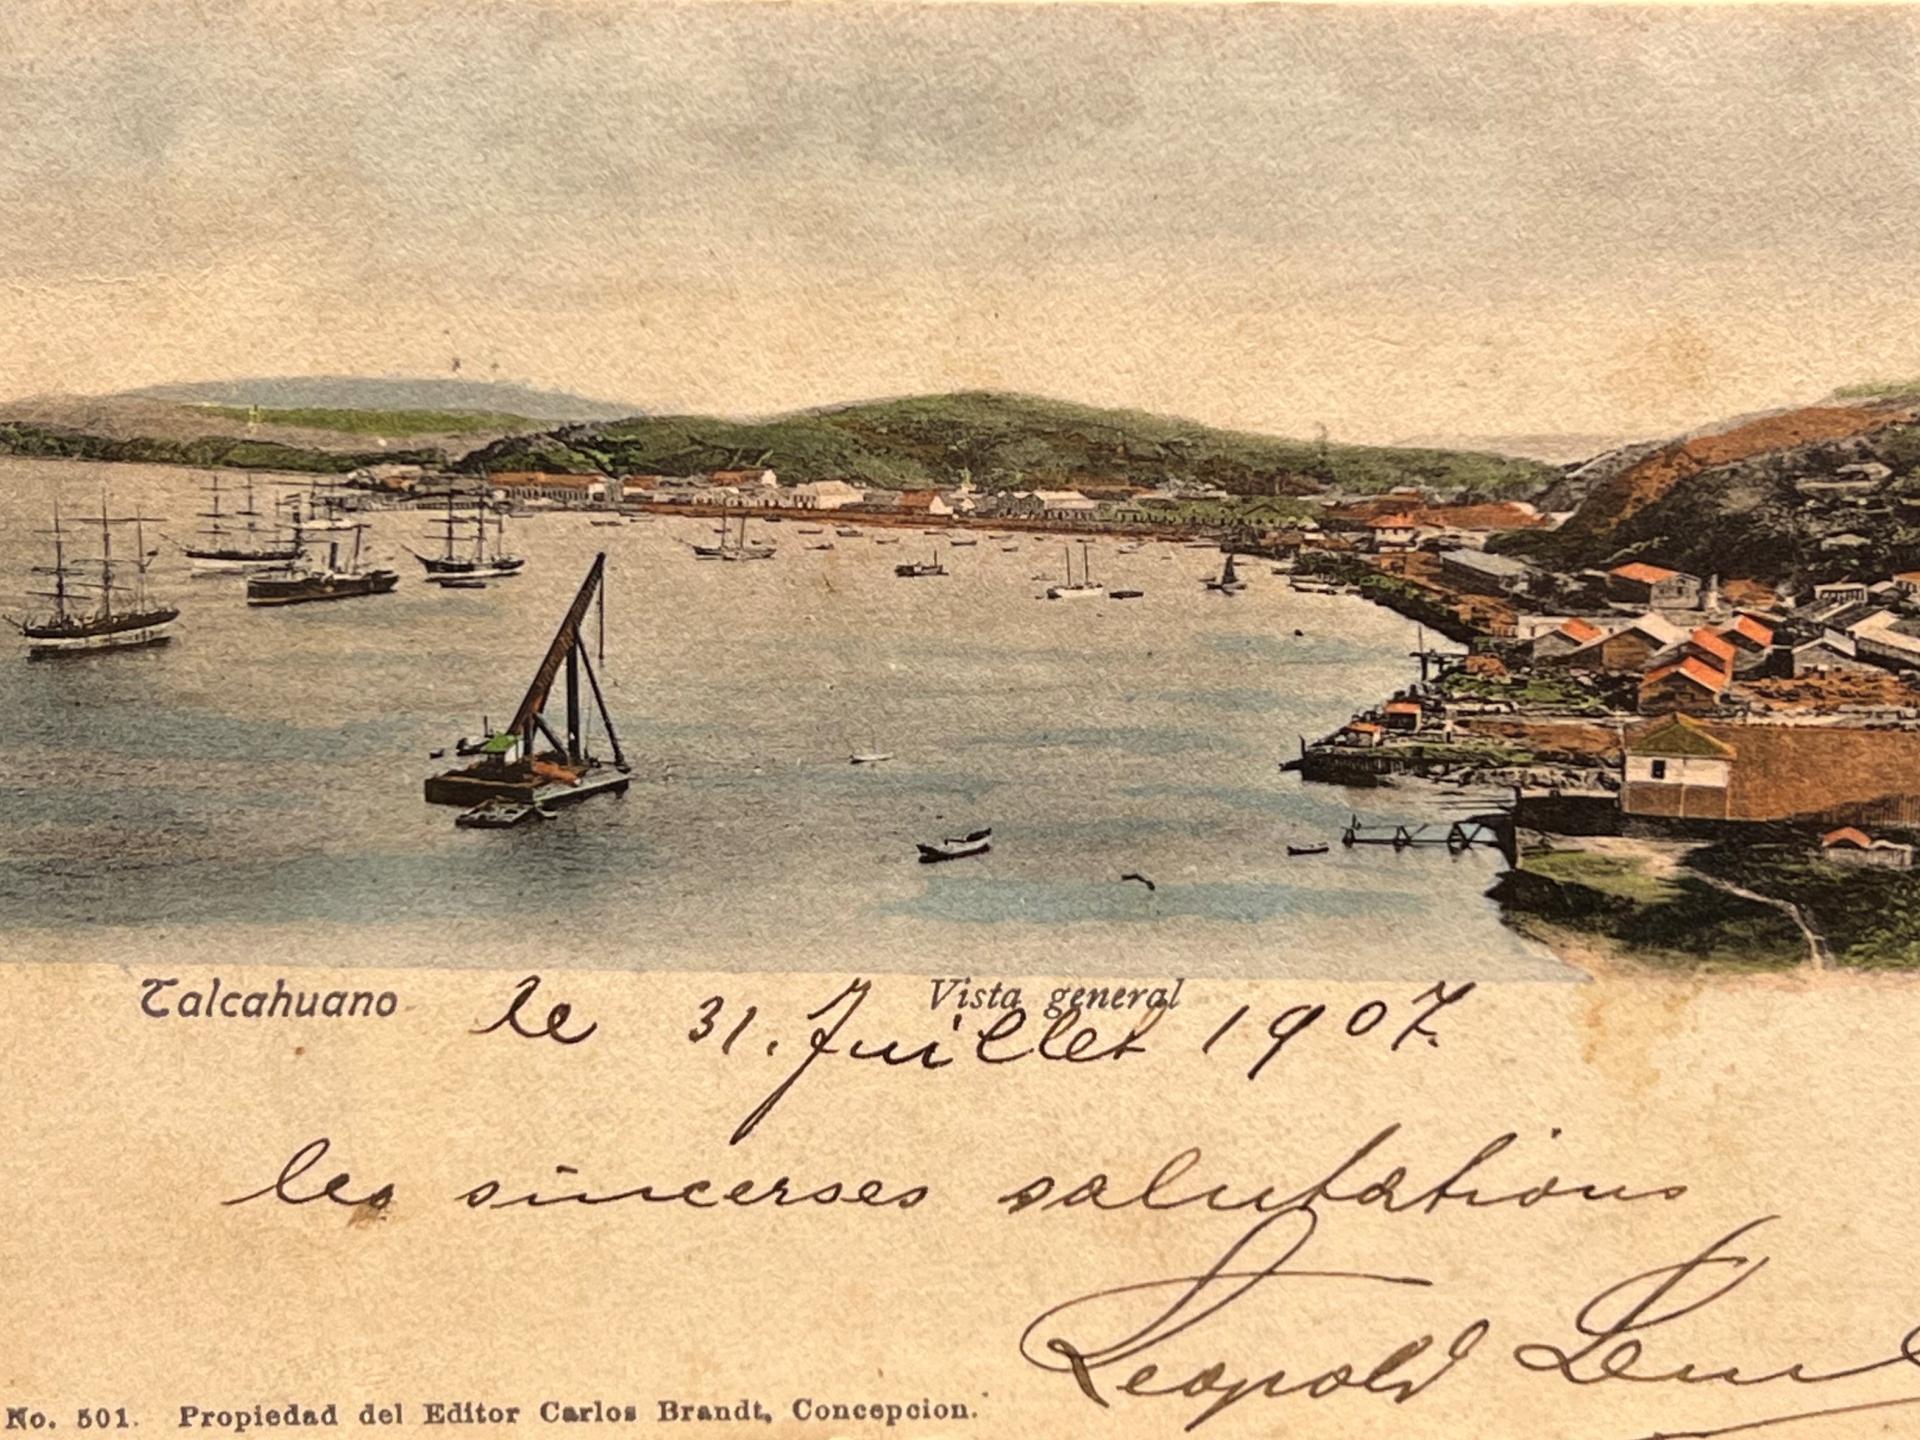 Talcahuano le 31. Juillet 1907. Vista general
les sincerses salutations
Leopold
No. 501. Propiedad del Editor Carlos Brandt, Concepcion.